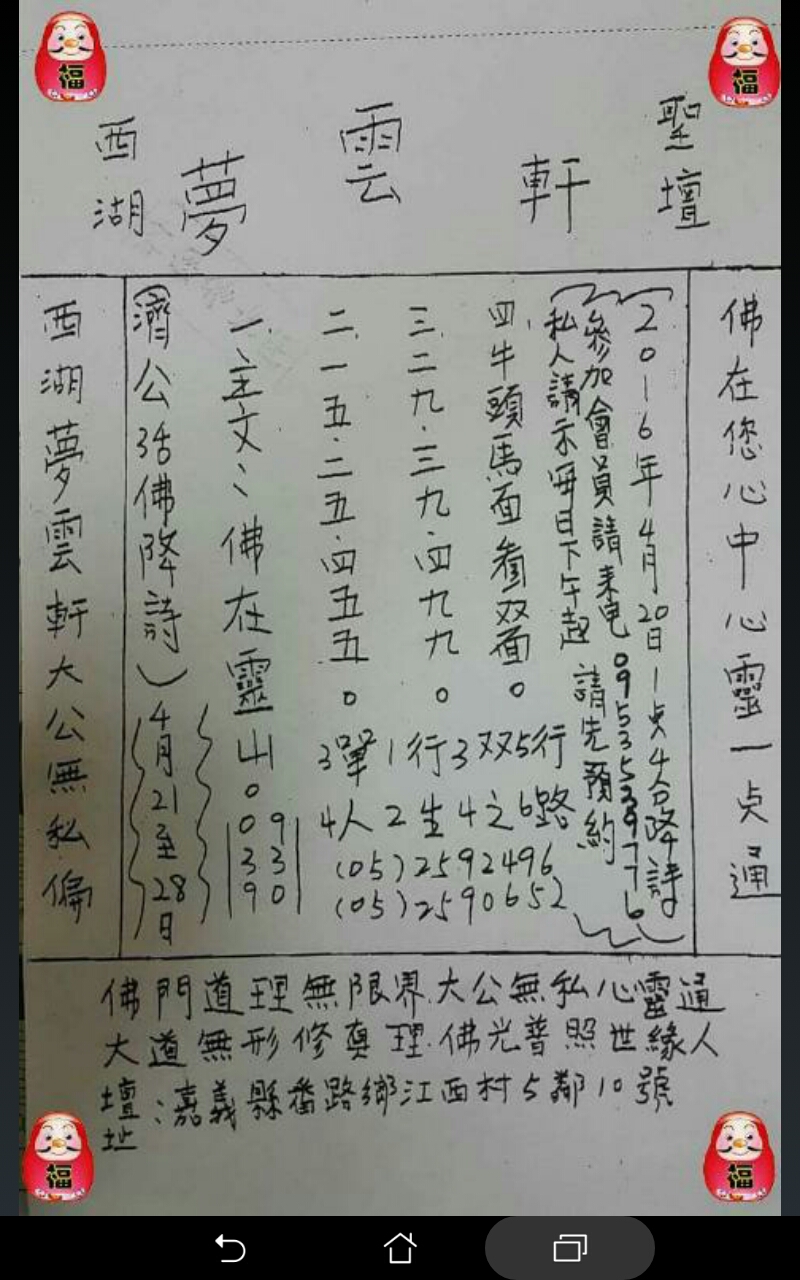 西湖 夢雲軒 聖壇
佛在您心中心靈一点通
(2016年4月20日1点4分降詩)
(參加會員請来电0953539776
私人請示每日下午起 請先預約)
四.牛頭馬面參双面。
三.二九.三九.四九九。
二.一五.二五.四五五。
一.主文:佛在靈山。
(濟公活佛降詩)
4月21至28日
3單1行3双5行
4人2生4之6路
(05)2592496
(05)2590652
09
33
90
西湖夢雲軒大公無私偏
佛門道理無限界.大公無私心靈通
大道無形修真理.佛光普照世緣人
壇址:嘉義縣番路鄉江西村5鄰10號
福
福
福
福